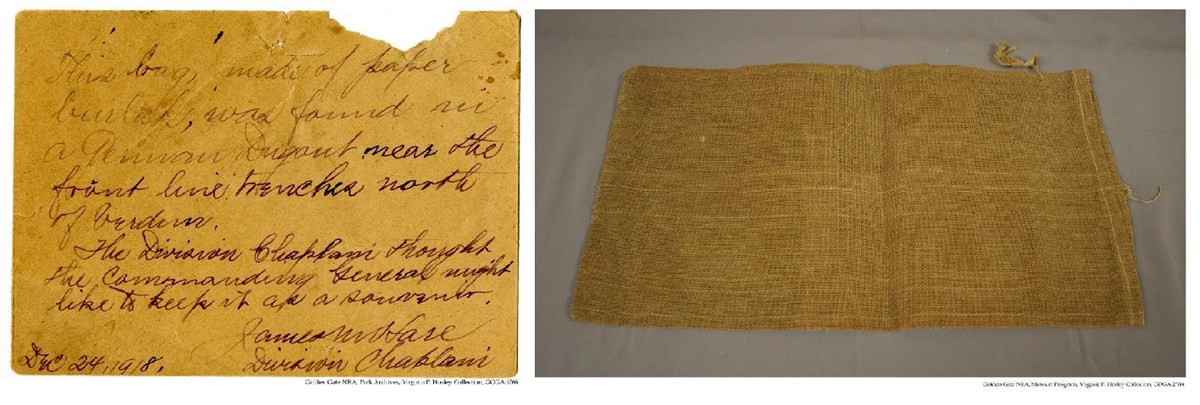 This bag, made of paper
burlap, was found in
a German Dugout near the
front line trenches north
of Verdun.
The Division Chaplain thought
the Commanding General might
like to keep it as a souvenir.
James M Hare
Dec 24, 1918. Division Chaplain
Golden Gate NRA, Park Archives, Virginia P. Hosley Collection, GOGA
Golden Gate NRA, Museum Program, Virginia P. Hosley Collection, GOGA